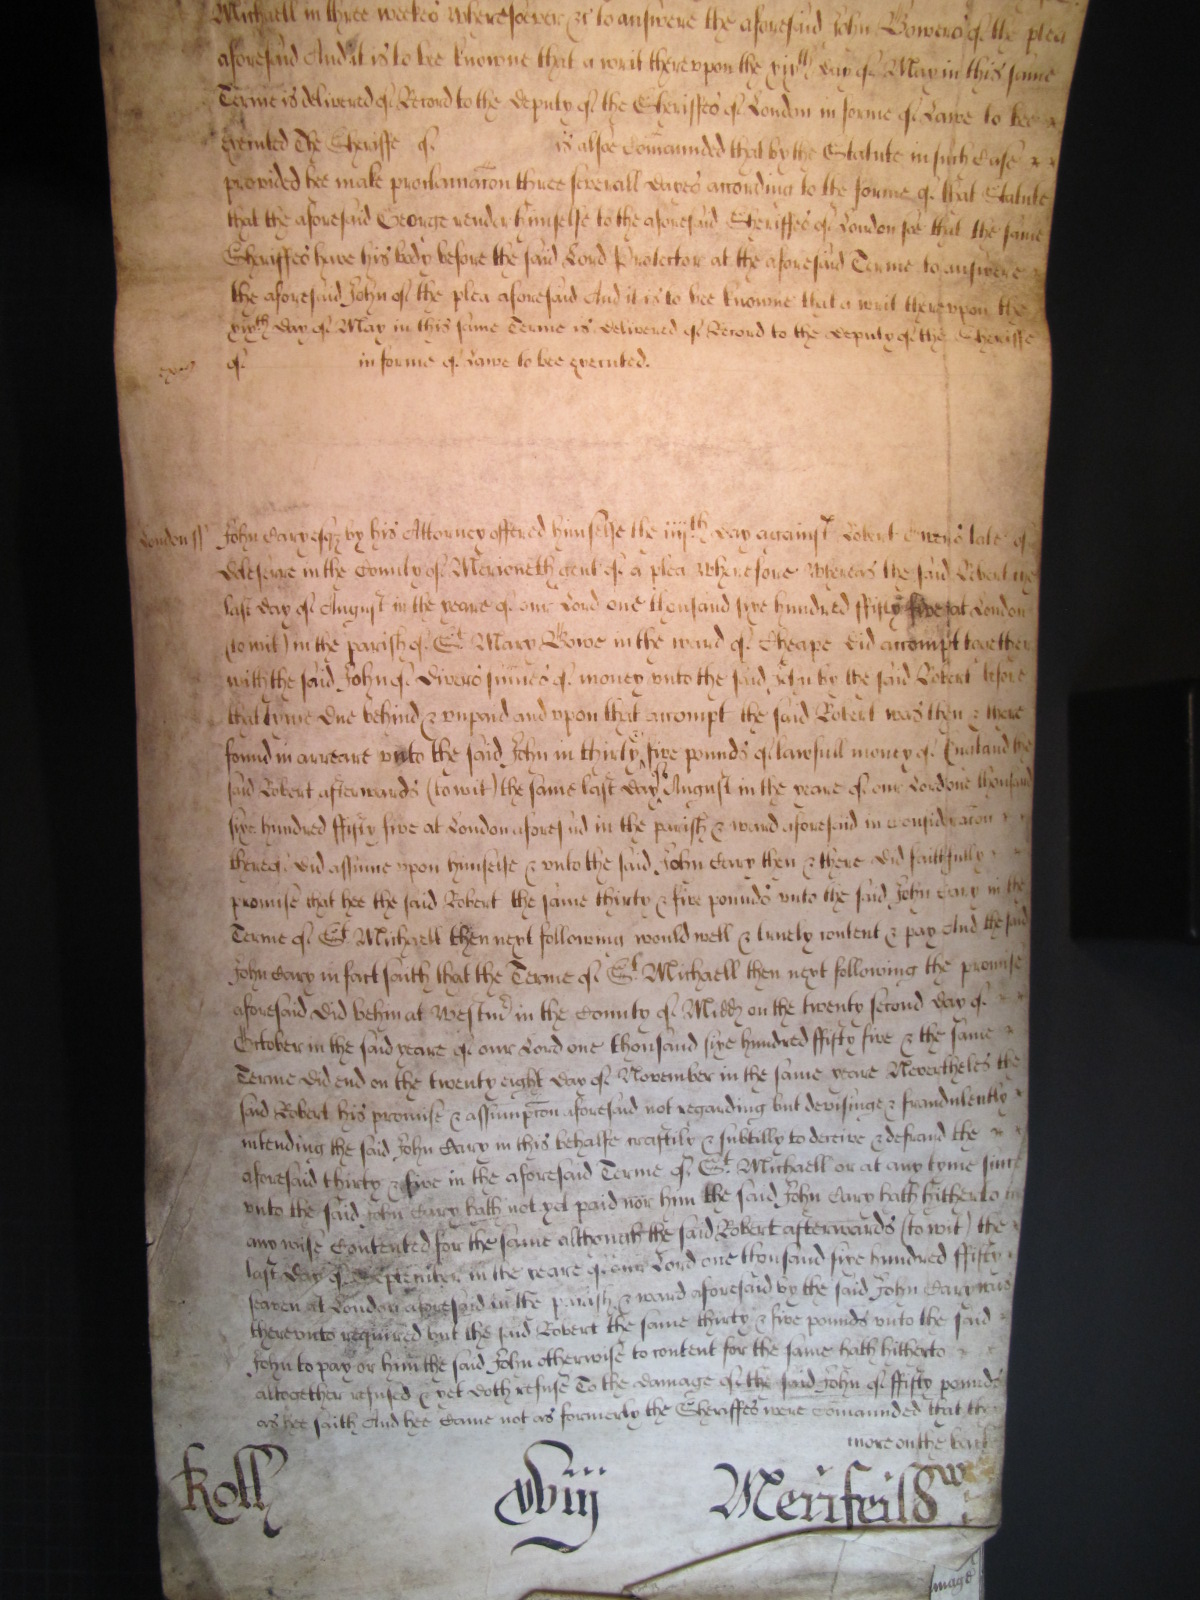 Michaell in three weekes wheresoever &c to answere the aforesaid John Bowers of the plea
aforesaid And it is to bee knowne that a writ thereupon the xixth day of May in this same
Terme is delivered of Record to the deputy of the Sheriffes of London in forme of Lawe to bee
executed The Sheriffe of is alsoe comaunded that by the Statute in such case
provided hee make proclamacon three severall dayes according to the forme of that Statute
that the aforesaid George render himselfe to the aforesaid Sheriffes of London soe that the same
Sheriffes have his body before the said Lord Protector at the aforesaid Terme to answere
the aforesaid John of the plea aforesaid And it is to bee knowne that a writ thereupon the
xixth day of May in this same Terme is delivered of Record to the deputy of the Sheriffe
of in forme of Lawe to bee executed.
London ss John Cary esqr by his Attorney offered himselfe the iiijth day against Robert Owens late of
in the County of Merioneth gent of a plea Wherefore Whereas the said Robert the
last day of August in the yeare of our Lord one thousand sixe hundred ffifty five at London
(to wit) in the parish of St Mary Bowe in the ward of Cheape did accompt together
with the said John of divers sumes of money unto the said John by the said Robert before
that tyme due behind & unpaid and upon that accompt the said Robert was then & there
found in arreare unto the said John in thirty & five pounds of lawfull money of England the
said Robert afterwards (to wit) the same last day of August in the yeare of our Lord one thousand
sixe hundred ffifty five at London aforesaid in the parish & ward aforesaid in consideracon
thereof did assume upon himselfe & unto the said John Cary then & there did faithfully
promise that hee the said Robert the same thirty & five pounds unto the said John Cary in the
Terme of St Michaell then next following would well & truely content & pay And the said
John Cary in fact saith that the Terme of St Michaell then next following the promise
aforesaid did begin at Westm in the County of Midd on the twenty second day of
October in the said yeare of our Lord one thousand sixe hundred ffifty five & the same
Terme did end on the twenty eight day of November in the same yeare Nevertheles the
said Robert his promise & assumpcon aforesaid not regarding but devisinge & fraudulently
intending the said John Cary in this behalfe craftily & subtilly to deceive & defraud the
aforesaid thirty & five in the aforesaid Terme of St Michaell or at any tyme since
unto the said John Cary hath not yet paid nor him the said John Cary hath hitherto in
any wise Contented for the same although the said Robert afterwards (to wit) the
last day of September in the yeare of our Lord one thousand sixe hundred ffifty
seaven at London aforesaid in the parish & ward aforesaid by the said John Cary was
thereunto required but the said Robert the same thirty & five pounds unto the said
John to pay or him the said John otherwise to content for the same hath hitherto
altogether refused & yet doth refuse To the damage of the said John of ffifty pounds
as hee saith And hee came not as formerly the Sheriffes were comaunded that the
more on the back
Roll xviij Merifeild
Image